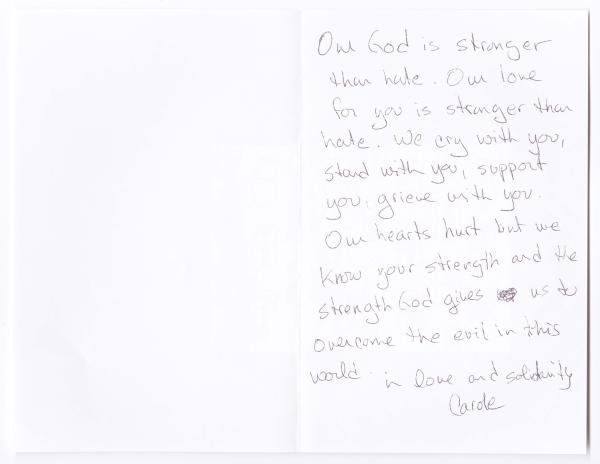 Our God is stronger
than hate. Our love
for you is stronger than
hate. We cry with you,
stand with you, support
you, grieve with you.
Our hearts hurt but we
know your strength and the
strength God gives us to
overcome the evil in this
world. in love and solidarity
Carole